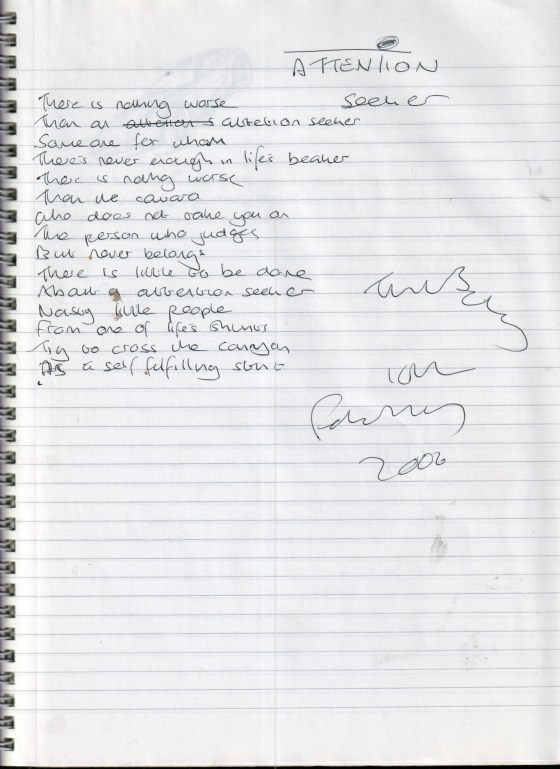 ATTENTION
Seeker
There is nothing worse
Than an attention s attention seeker
Someone for whom
There's never enough in life's beaker
There is nothing worse
Than the coward
Who does not take you on
The person who judges
But never belongs
There is little to be done
About a attention seeker
Noisy little people
From one of life's shunts
Try to cross the canyon
As a self fulfilling stunt
10th
February
2006